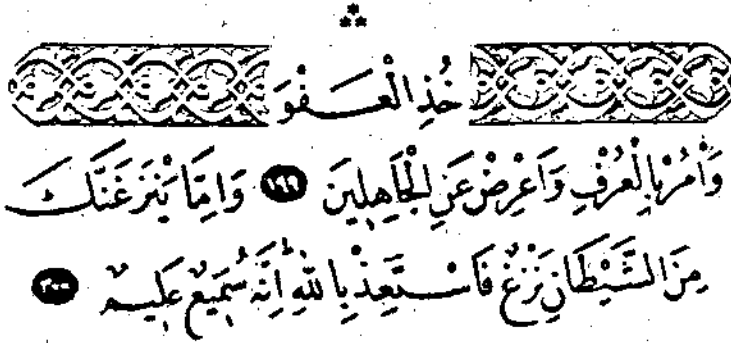 خُذِ الْعَفْوَ
وَأْمُرْ بِالْعُرْفِ وَاَعْرِضْ عَنِ الْجَاهِلِينَ ١٩٩ وَاِمَّا يَنْزَغَنَّكَ
مِنَ الشَّيْطَانِ نَزْغٌ فَاسْتَعِذْ بِاللّٰهِ اِنَّهُ سَمِيعٌ عَلِيمٌ ٢٠٠